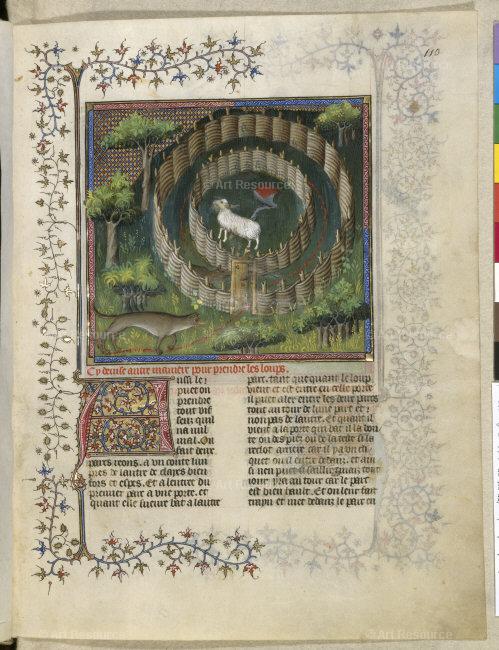 110
© Art Resource
Cy devise autre maniere pour prendre les loups.
Ausi le
puet on
prendre
tout vif
senz quil
na nul
mal. On
fait deux
parcs reons.
pres de lautre de cloyes bien
fors et espes. Et a lentree du
premier parc a une porte. et
quant elle sueure bat a lautre
parc. tant que quant le loup
vient et est entre en celle porte
il puet aler entre les deux parcs
tout au tour de lune part et
non pas de lautre. Et quant il
vient a la porte qui bat il la
ou des piez ou de la teste si la
reclot
quet ou il entre dedanz. et
si nen puet il saillir
jours yra au tour car le parc
est bien hault. Et on leur fait
trayn et met dedanz le parc en